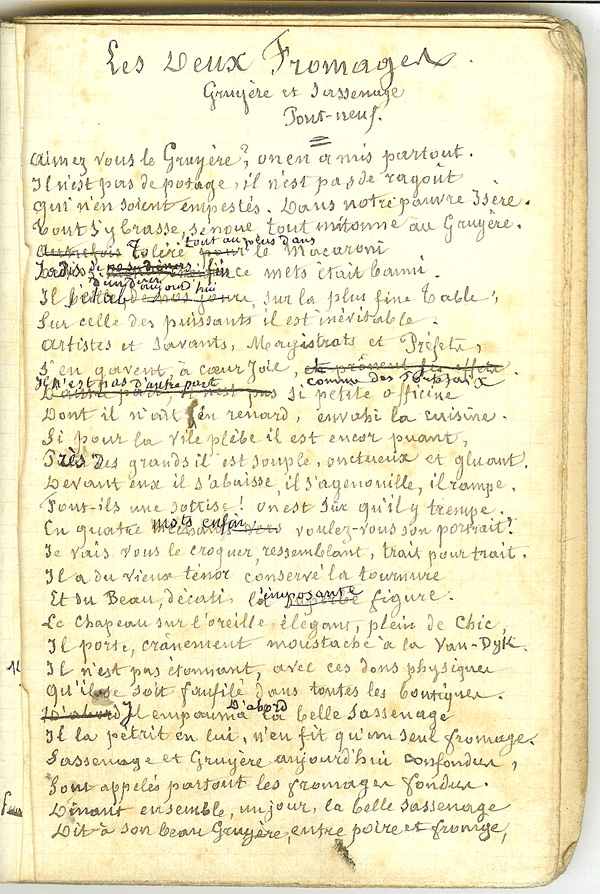 Les Deux Fromages.
Gruyère et Sassenage
Pont-neuf.
Aimez vous le Gruyère? on en a mis partout.
Il n'est pas de potage, il n'est pas de ragoût
Qui n'en soient empestés. Dans notre pauvre Isère.
Tout s'y brasse, se noue tout mitonne au Gruyère.
tout au plus dans
Autrefois Toléré pour le Macaroni
Jadis de nos dîners fin ce mets était banni.
d'un dîner aujourd'hui
Il de nos jours, sur la plus fine table,
Sur celle des puissants il est inévitable.
Artistes et Savants, Magistrats et Préfets,
S'en gavent, à cœur joie, et prônent ses effets.
comme des
Il n'est pas d'autre part
D'autre part il n'est pas si petite officine
Dont il n'ait en renard, envahi la cuisine.
Si pour la vile plèbe il est encor puant,
Très des grands il est souple, onctueux et gluant.
Devant eux il s'abaisse, il s'agenouille, il rampe.
Font-ils une sottise! on est sûr qu'il y trempe.
mots enfin
En quatre vers voulez-vous son portrait?
Je vais vous le croquer, ressemblant, trait pour trait.
Il a du vieux ténor conservé la tournure
imposante
Et du Beau, décati la figure.
Le Chapeau sur l'oreille, élégant, plein de Chic,
Il porte, crânement moustache à la Van-Dyk.
Il n'est pas étonnant, avec ces dons physiques
Qu'il se soit faufilé dans toutes les boutiques.
D'abord
D'abord Il empauma la belle Sassenage
Il la pétrit en lui, n'en fit qu'un seul fromage.
Sassenage et Gruyère aujourd'hui confondus,
Sont appelés partout les fromages fondus.
Dînant ensemble, un jour, la belle Sassenage
Dit à son beau Gruyère, entre poire et fromage,